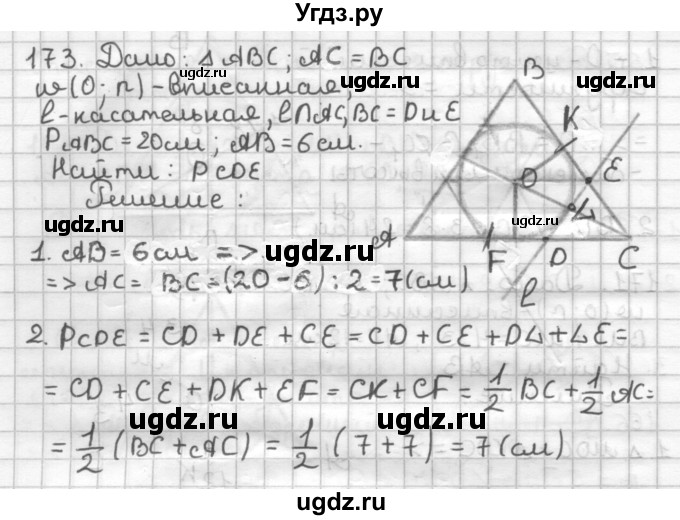 Угдз.ру
173. Дано: ΔABC; AC = BC
w(O; r) - вписанная,
l - касательная, l∩AC, BC = D и E
PABC = 20 см; AB = 6 см.
Найти: PCDE
Решение:
B
K
O
E
L
A
F
D
C
l
1. AB = 6 см =>
=> AC = BC = (20 - 6) : 2 = 7 (см)
2. PCDE = CD + DE + CE = CD + CE + DL + LE =
= CD + CE + DK + EF = CK + CF = 1/2 BC + 1/2 AC =
= 1/2 (BC + AC) = 1/2 (7 + 7) = 7 (см)
ugdz.ru
ugdz.ru
ugdz.ru
ugdz.ru
ugdz.ru
ugdz.ru
ugdz.ru
ugdz.ru
ugdz.ru
ugdz.ru
ugdz.ru